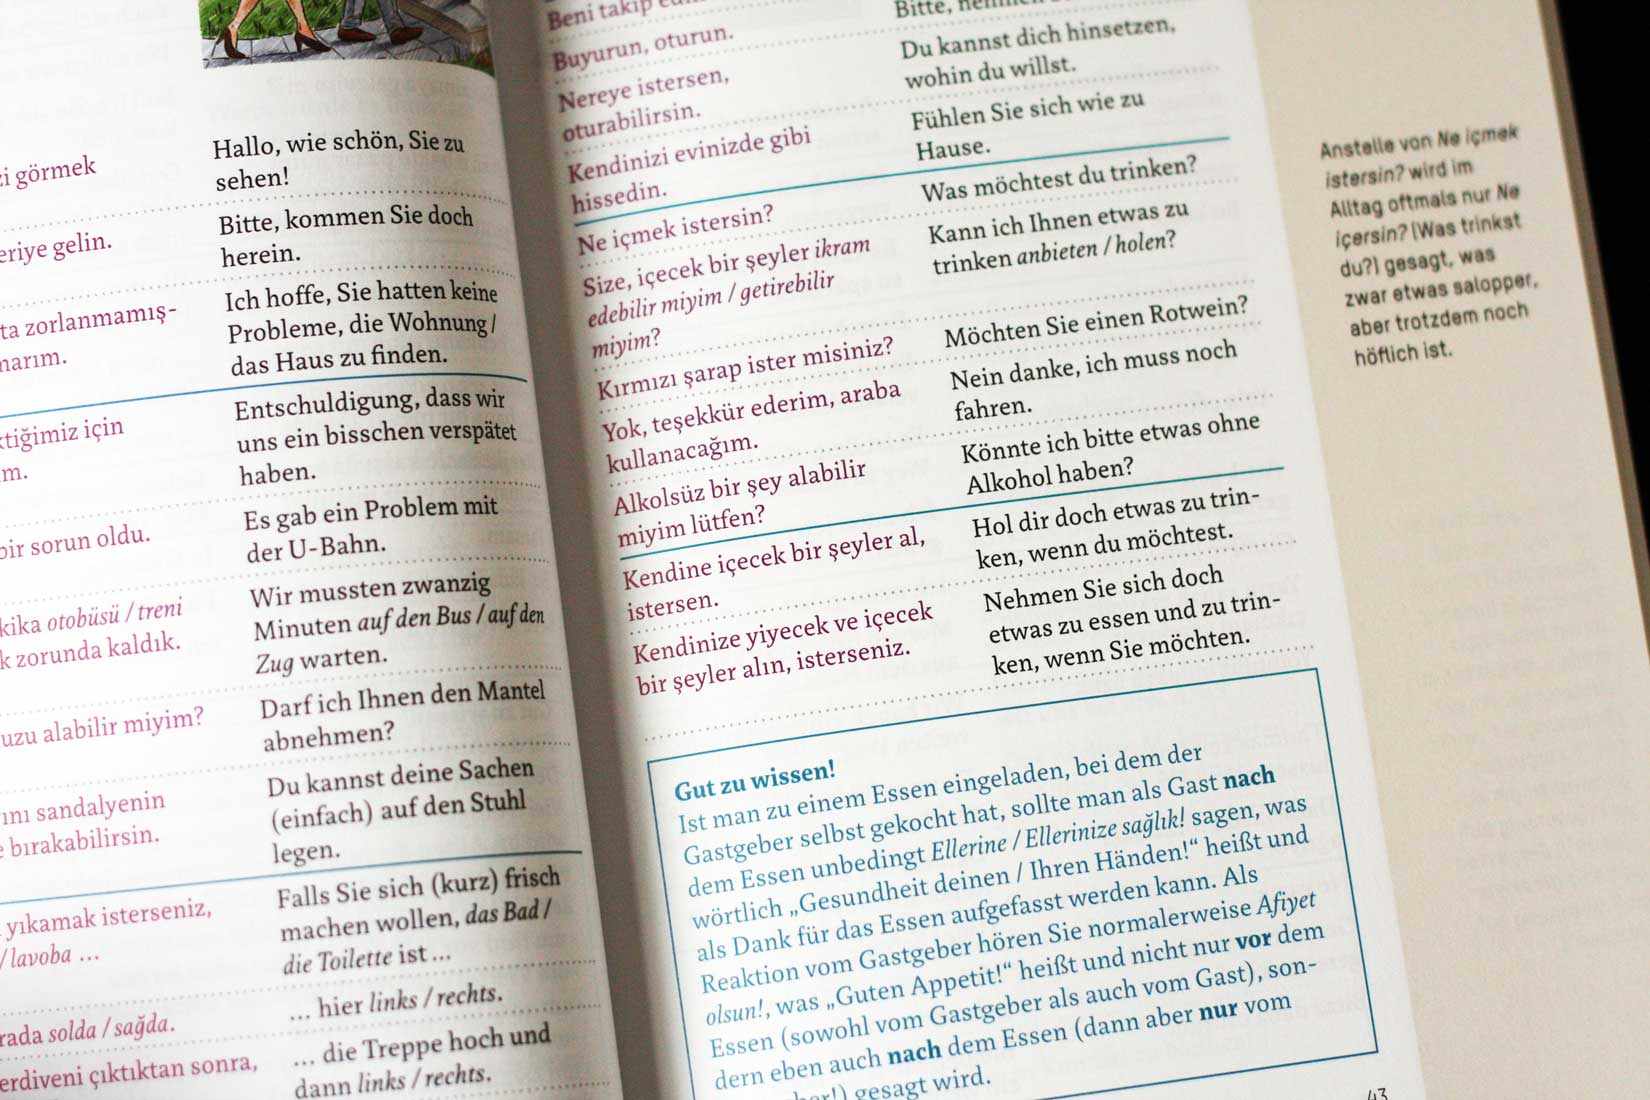 zi görmek
Hallo, wie schön, Sie zu
sehen!
eriye gelin.
Bitte, kommen Sie doch
herein.
ta zorlanmamış-
marım.
Ich hoffe, Sie hatten keine
Probleme, die Wohnung /
das Haus zu finden.
ktiğimiz için
m.
Entschuldigung, dass wir
uns ein bisschen verspätet
haben.
bir sorun oldu.
Es gab ein Problem mit
der U-Bahn.
kika otobüsü / treni
k zorunda kaldık.
Wir mussten zwanzig
Minuten auf den Bus / auf den
Zug warten.
uzu alabilir miyim?
Darf ich Ihnen den Mantel
abnehmen?
ını sandalyenin
e bırakabilirsin.
Du kannst deine Sachen
(einfach) auf den Stuhl
legen.
yıkamak isterseniz,
/ lavoba ...
Falls Sie sich (kurz) frisch
machen wollen, das Bad /
die Toilette ist ...
rada solda / sağda.
... hier links / rechts.
erdiveni çıktıktan sonra,
... die Treppe hoch und
dann links / rechts.
Beni takip
Bitte,
Buyurun, oturun.
Nereye istersen,
oturabilirsin.
Du kannst dich hinsetzen,
wohin du willst.
Kendinizi evinizde gibi
hissedin.
Fühlen Sie sich wie zu
Hause.
Ne içmek istersin?
Was möchtest du trinken?
Size, içecek bir şeyler ikram
edebilir miyim / getirebilir
miyim?
Kann ich Ihnen etwas zu
trinken anbieten / holen?
Kırmızı şarap ister misiniz?
Möchten Sie einen Rotwein?
Yok, teşekkür ederim, araba
kullanacağım.
Nein danke, ich muss noch
fahren.
Alkolsüz bir şey alabilir
miyim lütfen?
Könnte ich bitte etwas ohne
Alkohol haben?
Kendine içecek bir şeyler al,
istersen.
Hol dir doch etwas zu trin-
ken, wenn du möchtest.
Kendinize yiyecek ve içecek
bir şeyler alın, isterseniz.
Nehmen Sie sich doch
etwas zu essen und zu trin-
ken, wenn Sie möchten.
Gut zu wissen!
Ist man zu einem Essen eingeladen, bei dem der
Gastgeber selbst gekocht hat, sollte man als Gast nach
dem Essen unbedingt Ellerine / Ellerinize sağlık! sagen, was
wörtlich „Gesundheit deinen / Ihren Händen!“ heißt und
als Dank für das Essen aufgefasst werden kann. Als
Reaktion vom Gastgeber hören Sie normalerweise Afiyet
olsun!, was „Guten Appetit!“ heißt und nicht nur vor dem
Essen (sowohl vom Gastgeber als auch vom Gast), son-
dern eben auch nach dem Essen (dann aber nur vom
gesagt wird.
43
Anstelle von Ne içmek
istersin? wird im
Alltag oftmals nur Ne
içersin? (Was trinkst
du?) gesagt, was
zwar etwas salopper,
aber trotzdem noch
höflich ist.